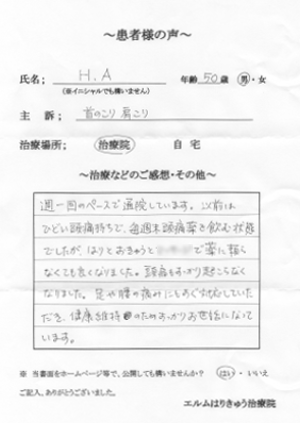 ～患者様の声～
氏名； H.A 年齢 50 歳 男・女
（※イニシャルでも構いません）
主 訴； 首のこり 肩こり
治療場所； 治療院 自 宅
～治療などのご感想・その他～
週一回のペースで通院しています。以前は
ひどい頭痛持ちで、毎週末頭痛薬を飲む状態
でしたが、はりとおきゅうと で薬に頼ら
なくても良くなりました。頭痛もすっかり起こらなく
なりました。足や腰の痛みにもすぐ対応していた
だき、健康維持のためすっかりお世話になって
います。
※ 当書面をホームページ等で、公開しても構いませんか？ はい・いいえ
ご記入、ありがとうございました。
エルムはりきゅう治療院